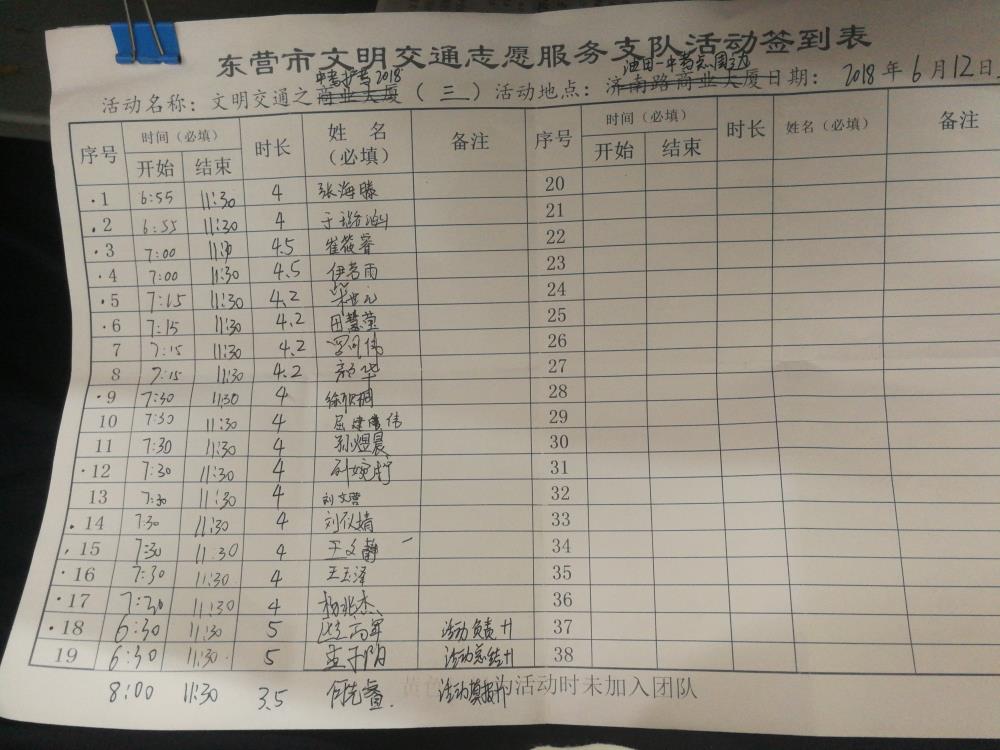 东营市文明交通志愿服务支队活动签到表
中考护考2018 油田一中考点周边
活动名称：文明交通之商业大厦（三）活动地点：济南路商业大厦日期：2018年6月12日
序号 时间（必填） 时长 姓名（必填） 备注 序号 时间（必填） 时长 姓名（必填） 备注
开始 结束 开始 结束
·1 6:55 11:30 4 张海滕 20
·2 6:55 11:30 4 于 21
·3 7:00 11:30 4.5 崔筱睿 22
·4 7:00 11:30 4.5 伊若雨 23
·5 7:15 11:30 4.2 24
·6 7:15 11:30 4.2 田慧莹 25
7 7:15 11:30 4.2 伟 26
8 7:15 11:30 4.2 华 27
·9 7:30 11:30 4 徐 28
10 7:30 11:30 4 屈 伟 29
11 7:30 11:30 4 孙煜晨 30
·12 7:30 11:30 4 婉 31
13 7:30 11:30 4 刘文营 32
·14 7:30 11:30 4 刘 婧 33
·15 7:30 11:30 4 王文静 34
·16 7:30 11:30 4 王玉泽 35
·17 7:30 11:30 4 杨兆杰 36
·18 6:30 11:30 5 活动负责 37
19 6:30 11:30 5 孟子阳 活动总结 38
8:00 11:30 3.5 何 活动填报 黄色 为活动时未加入团队